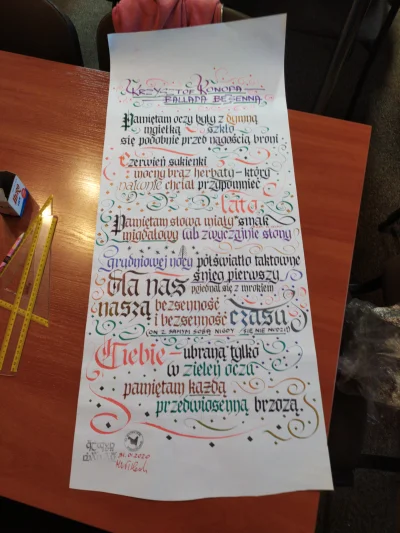 KRZYSZTOF KONOPA
BALLADA BEZSENNA
Pamiętam oczy były z dymną
mgiełką szkło
się podobnie przed nagością broni
Czerwień sukienki
z mocny brąz herbaty – który
natrętnie chciał przypomnieć
lato
Pamiętam słowa miały smak
migdałowy lub zwyczajnie słony
Grudniowej nocy półświatło taktowne
śnieg pierwszy
Dla nas pojednał się z mrokiem
naszą bezsenność
i bezsenność czasu
(ON Z SAMYM SOBĄ NIGDY SIĘ NIE NUDZI)
Ciebie – ubraną tylko
w zieleń oczu
pamiętam każdą
przedwiosenną brzozą.
2020